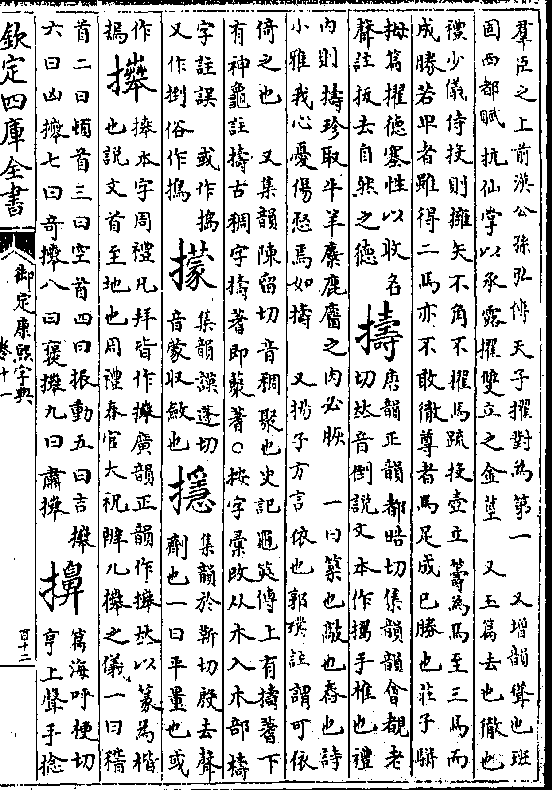 羣臣之上前漢公孫弘傳天子擢對為第一　又增韻聳也班
固西都賦抗仙掌以承露擢雙立之金莖　又玉篇去也徹也
禮少儀侍投則擁矢不角不擢馬疏投壺立籌為馬至三馬而
成勝若卑者雖得二馬亦不敢徹尊者馬足成已勝也莊子駢
拇篇擢德塞性以收名
聲註拔去自然之德
擣
唐韻正韻都晧切集韻韻會覩老
切𠀤音倒說文本作㨶手椎也禮
内則擣珍取牛羊麋鹿麕之肉必脄　一曰築也敲也舂也詩
小雅我心憂傷惄焉如擣　又揚子方言依也郭璞註謂可依
倚之也　又集韻陳留切音稠聚也史記龜筴傳上有擣蓍下
有神龜註擣古稠字擣蓍即藂蓍○按字彙改从木入木部檮
字註誤　或作搗
又作捯俗作㨶
㩚
集韻謨蓬切
音蒙収斂也
㩛
集韻於靳切殷去聲
劑也一曰平量也或
作
㩜
㩜本字周禮凡拜皆作㩜廣韻正韻作㩜𠀤以篆為楷
也說文首至地也周禮春官大祝辨九㩜之儀一曰稽
首二曰頓首三曰空首四曰振動五曰吉㩜
六曰凶㩜七曰奇㩜八曰褒㩜九曰肅㩜
擤
篇海呼梗切
亨上聲手捻
欽定四庫全書
御定康熙字典
卷十一
百十二